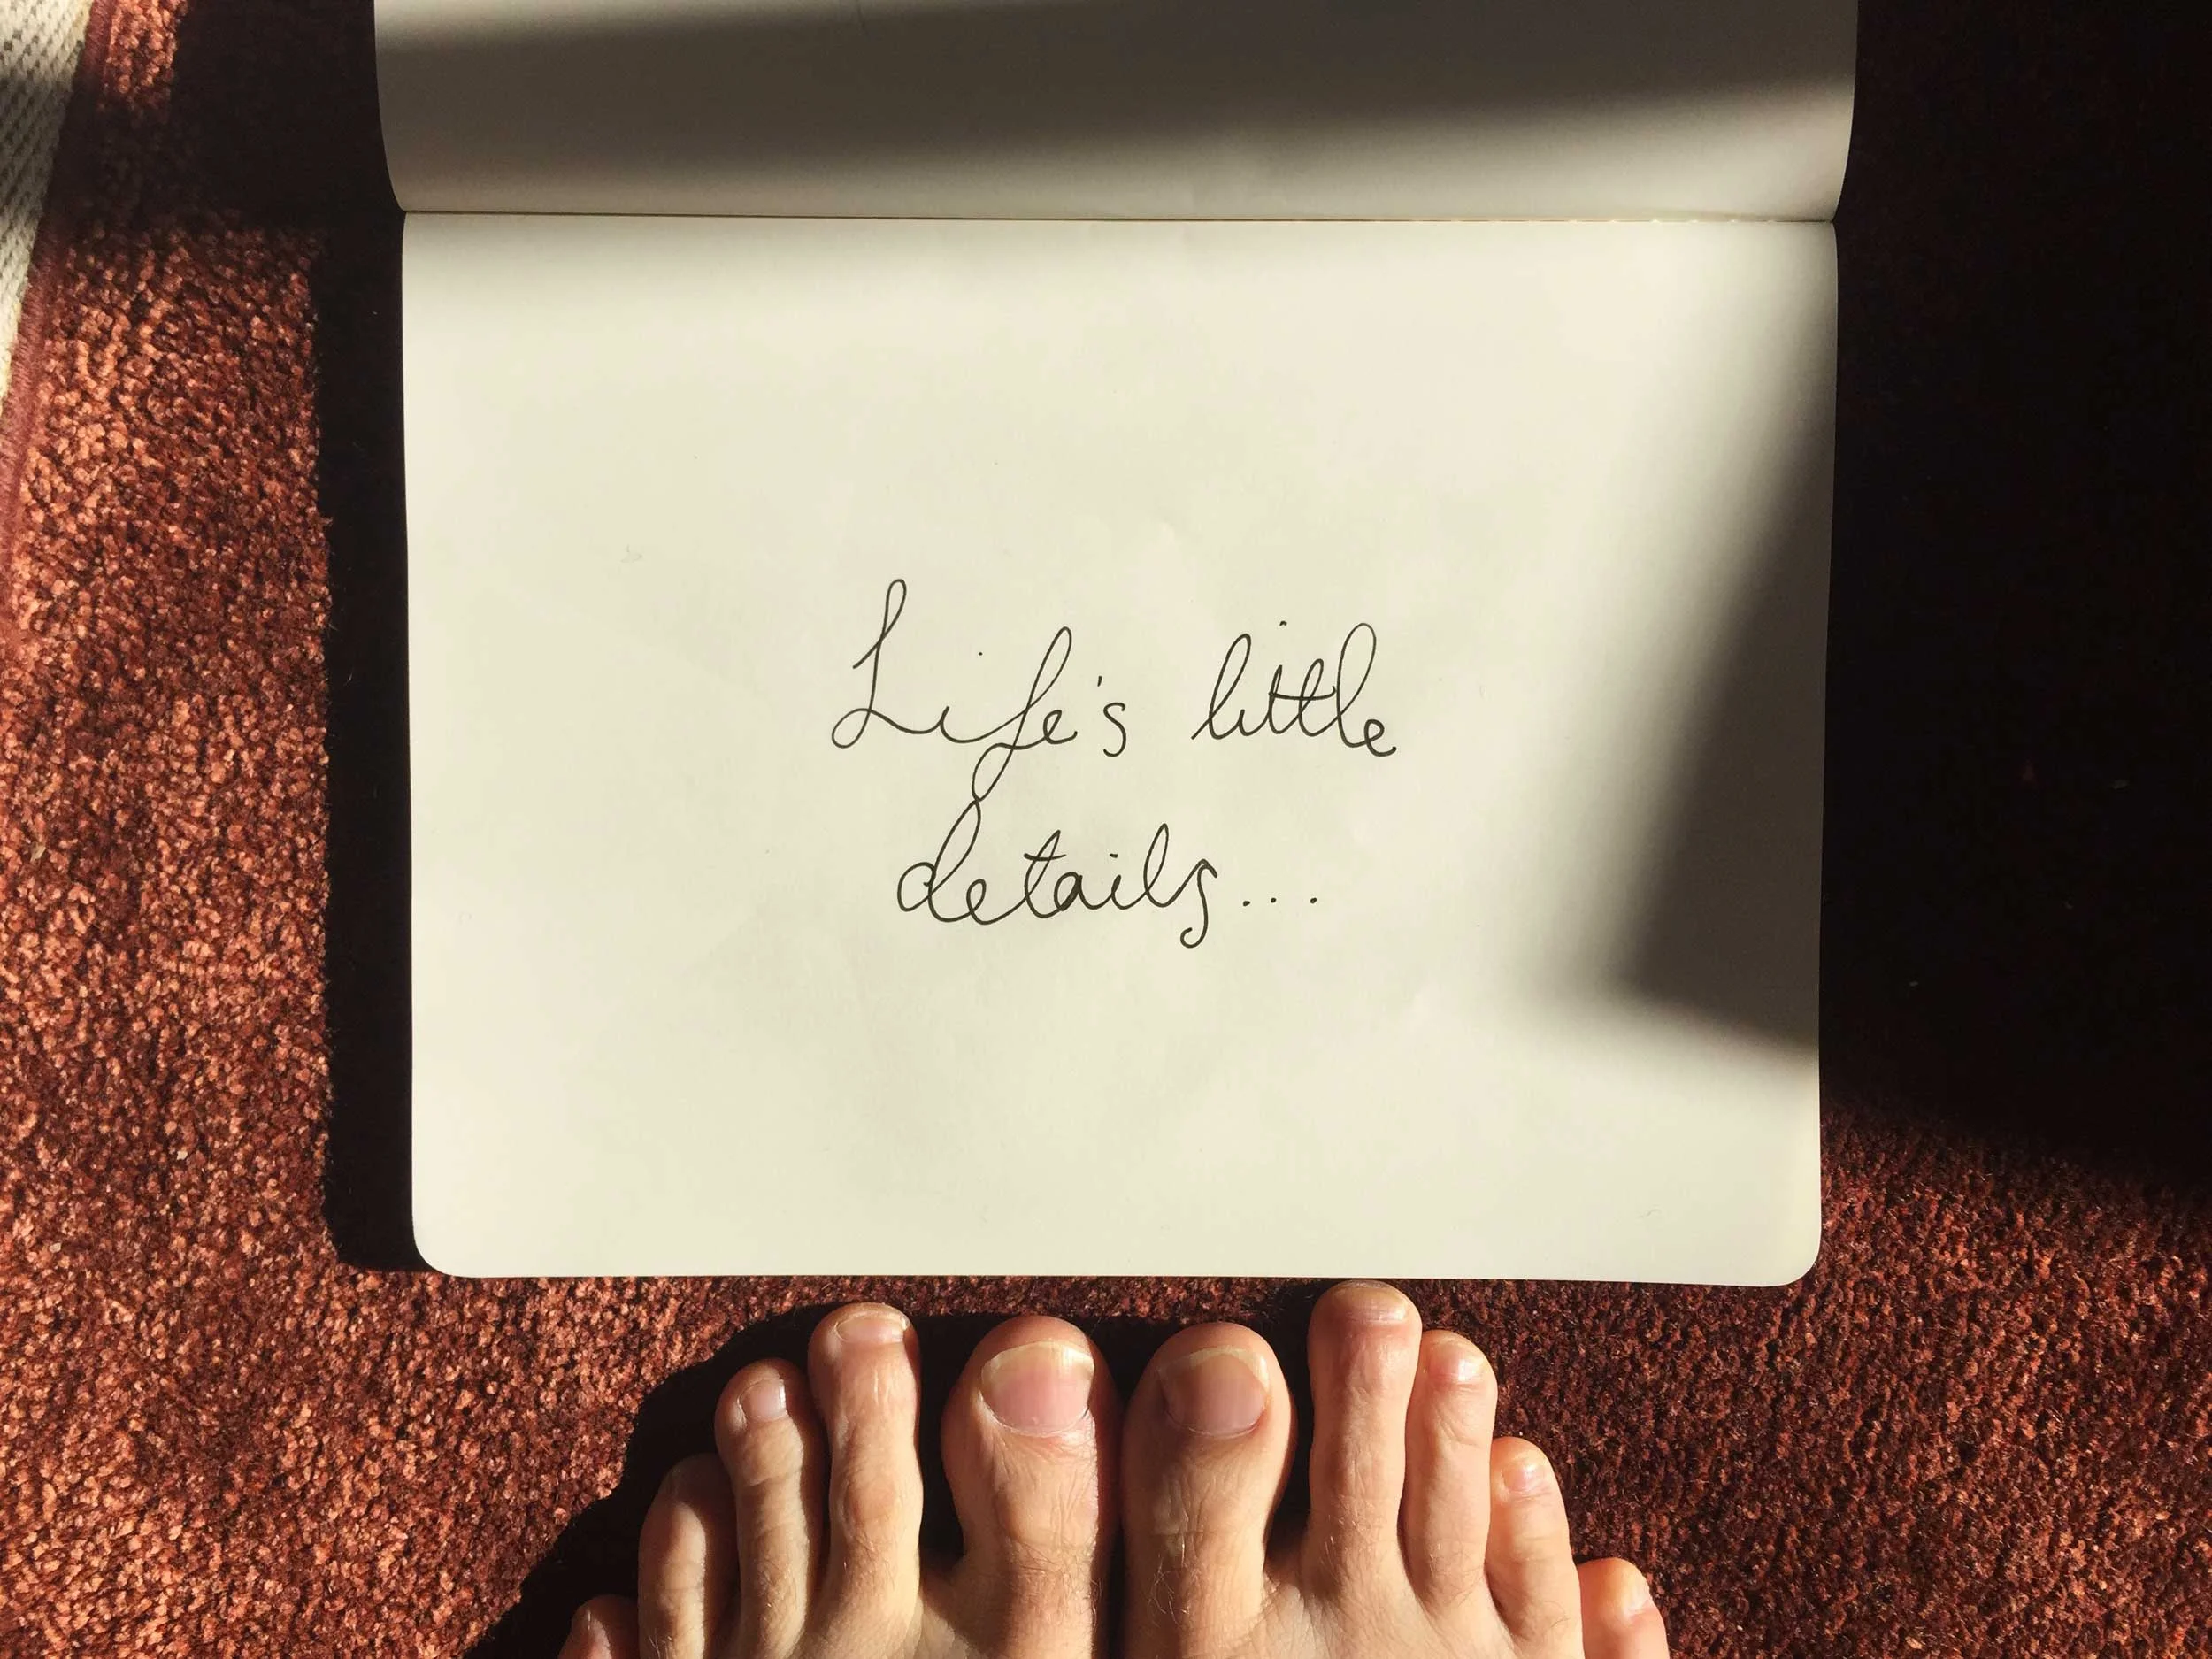 Life's little
details...